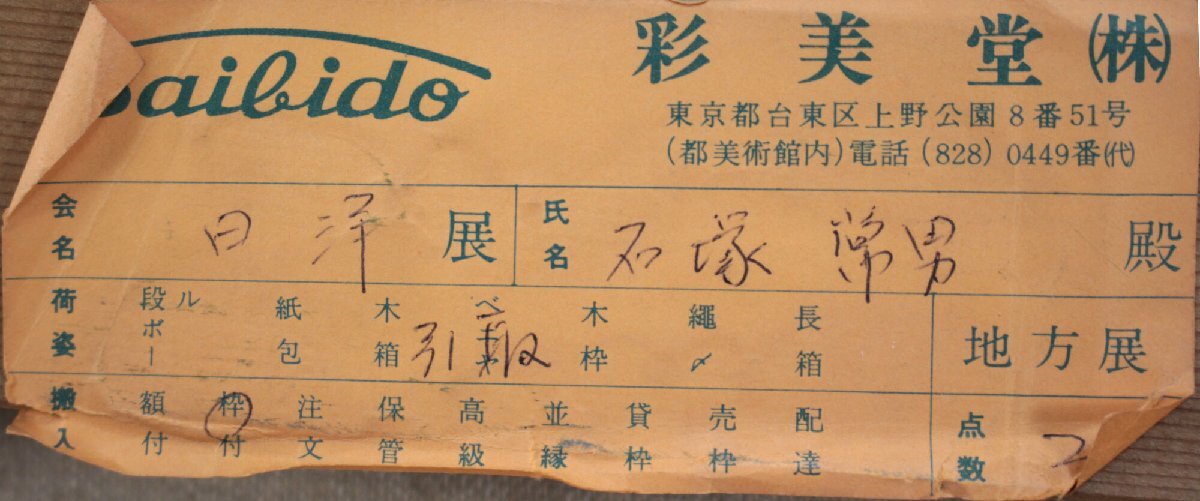 Saibido 彩美堂(株)
東京都台東区上野公園8番51号
(都美術館内)電話(828)0449番(代)
会名 日洋展 氏名 石塚常男 殿
荷姿 段ボール 紙包 木箱 引取 木枠 繩〆 長箱 地方展
搬入 額付 枠付 注文 保管 高級 並縁 貸枠 売枠 配達 点数 2